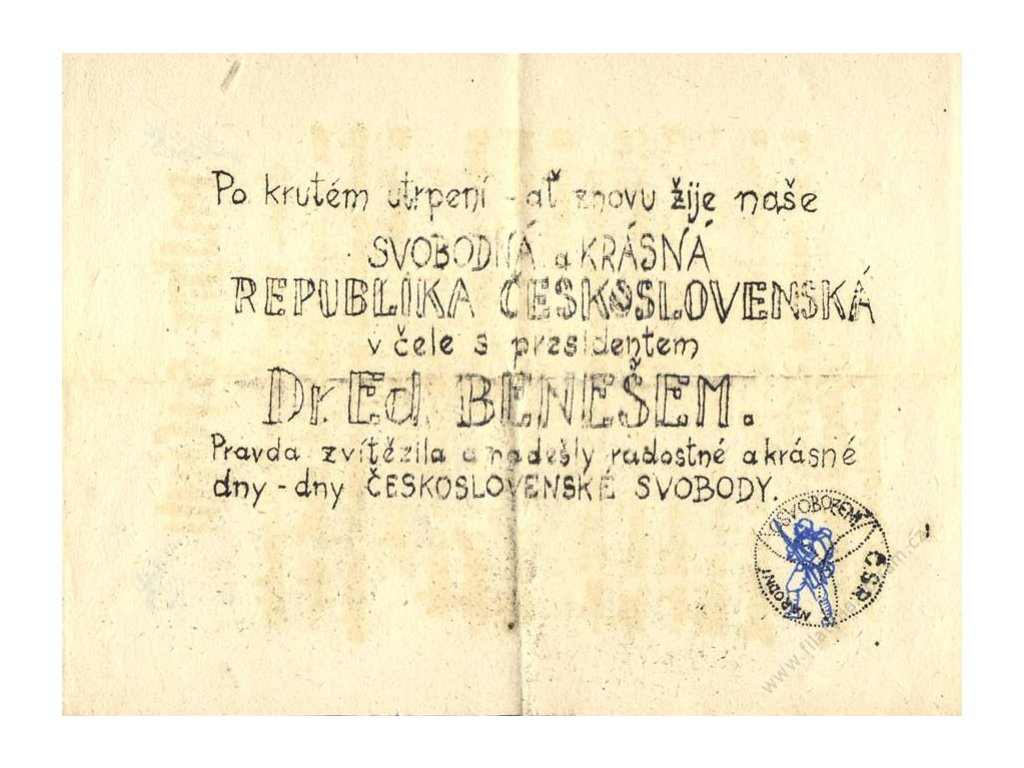 Po krutém utrpení - ať znovu žije naše
SVOBODNÁ a KRÁSNÁ
REPUBLIKA ČESKOSLOVENSKÁ
v čele s presidentem
Dr. Ed. BENEŠEM.
Pravda zvítězila a nadešly radostné a krásné
dny - dny ČESKOSLOVENSKÉ SVOBODY.
NÁRODNÍ OSVOBOZENÍ Č.S.R.